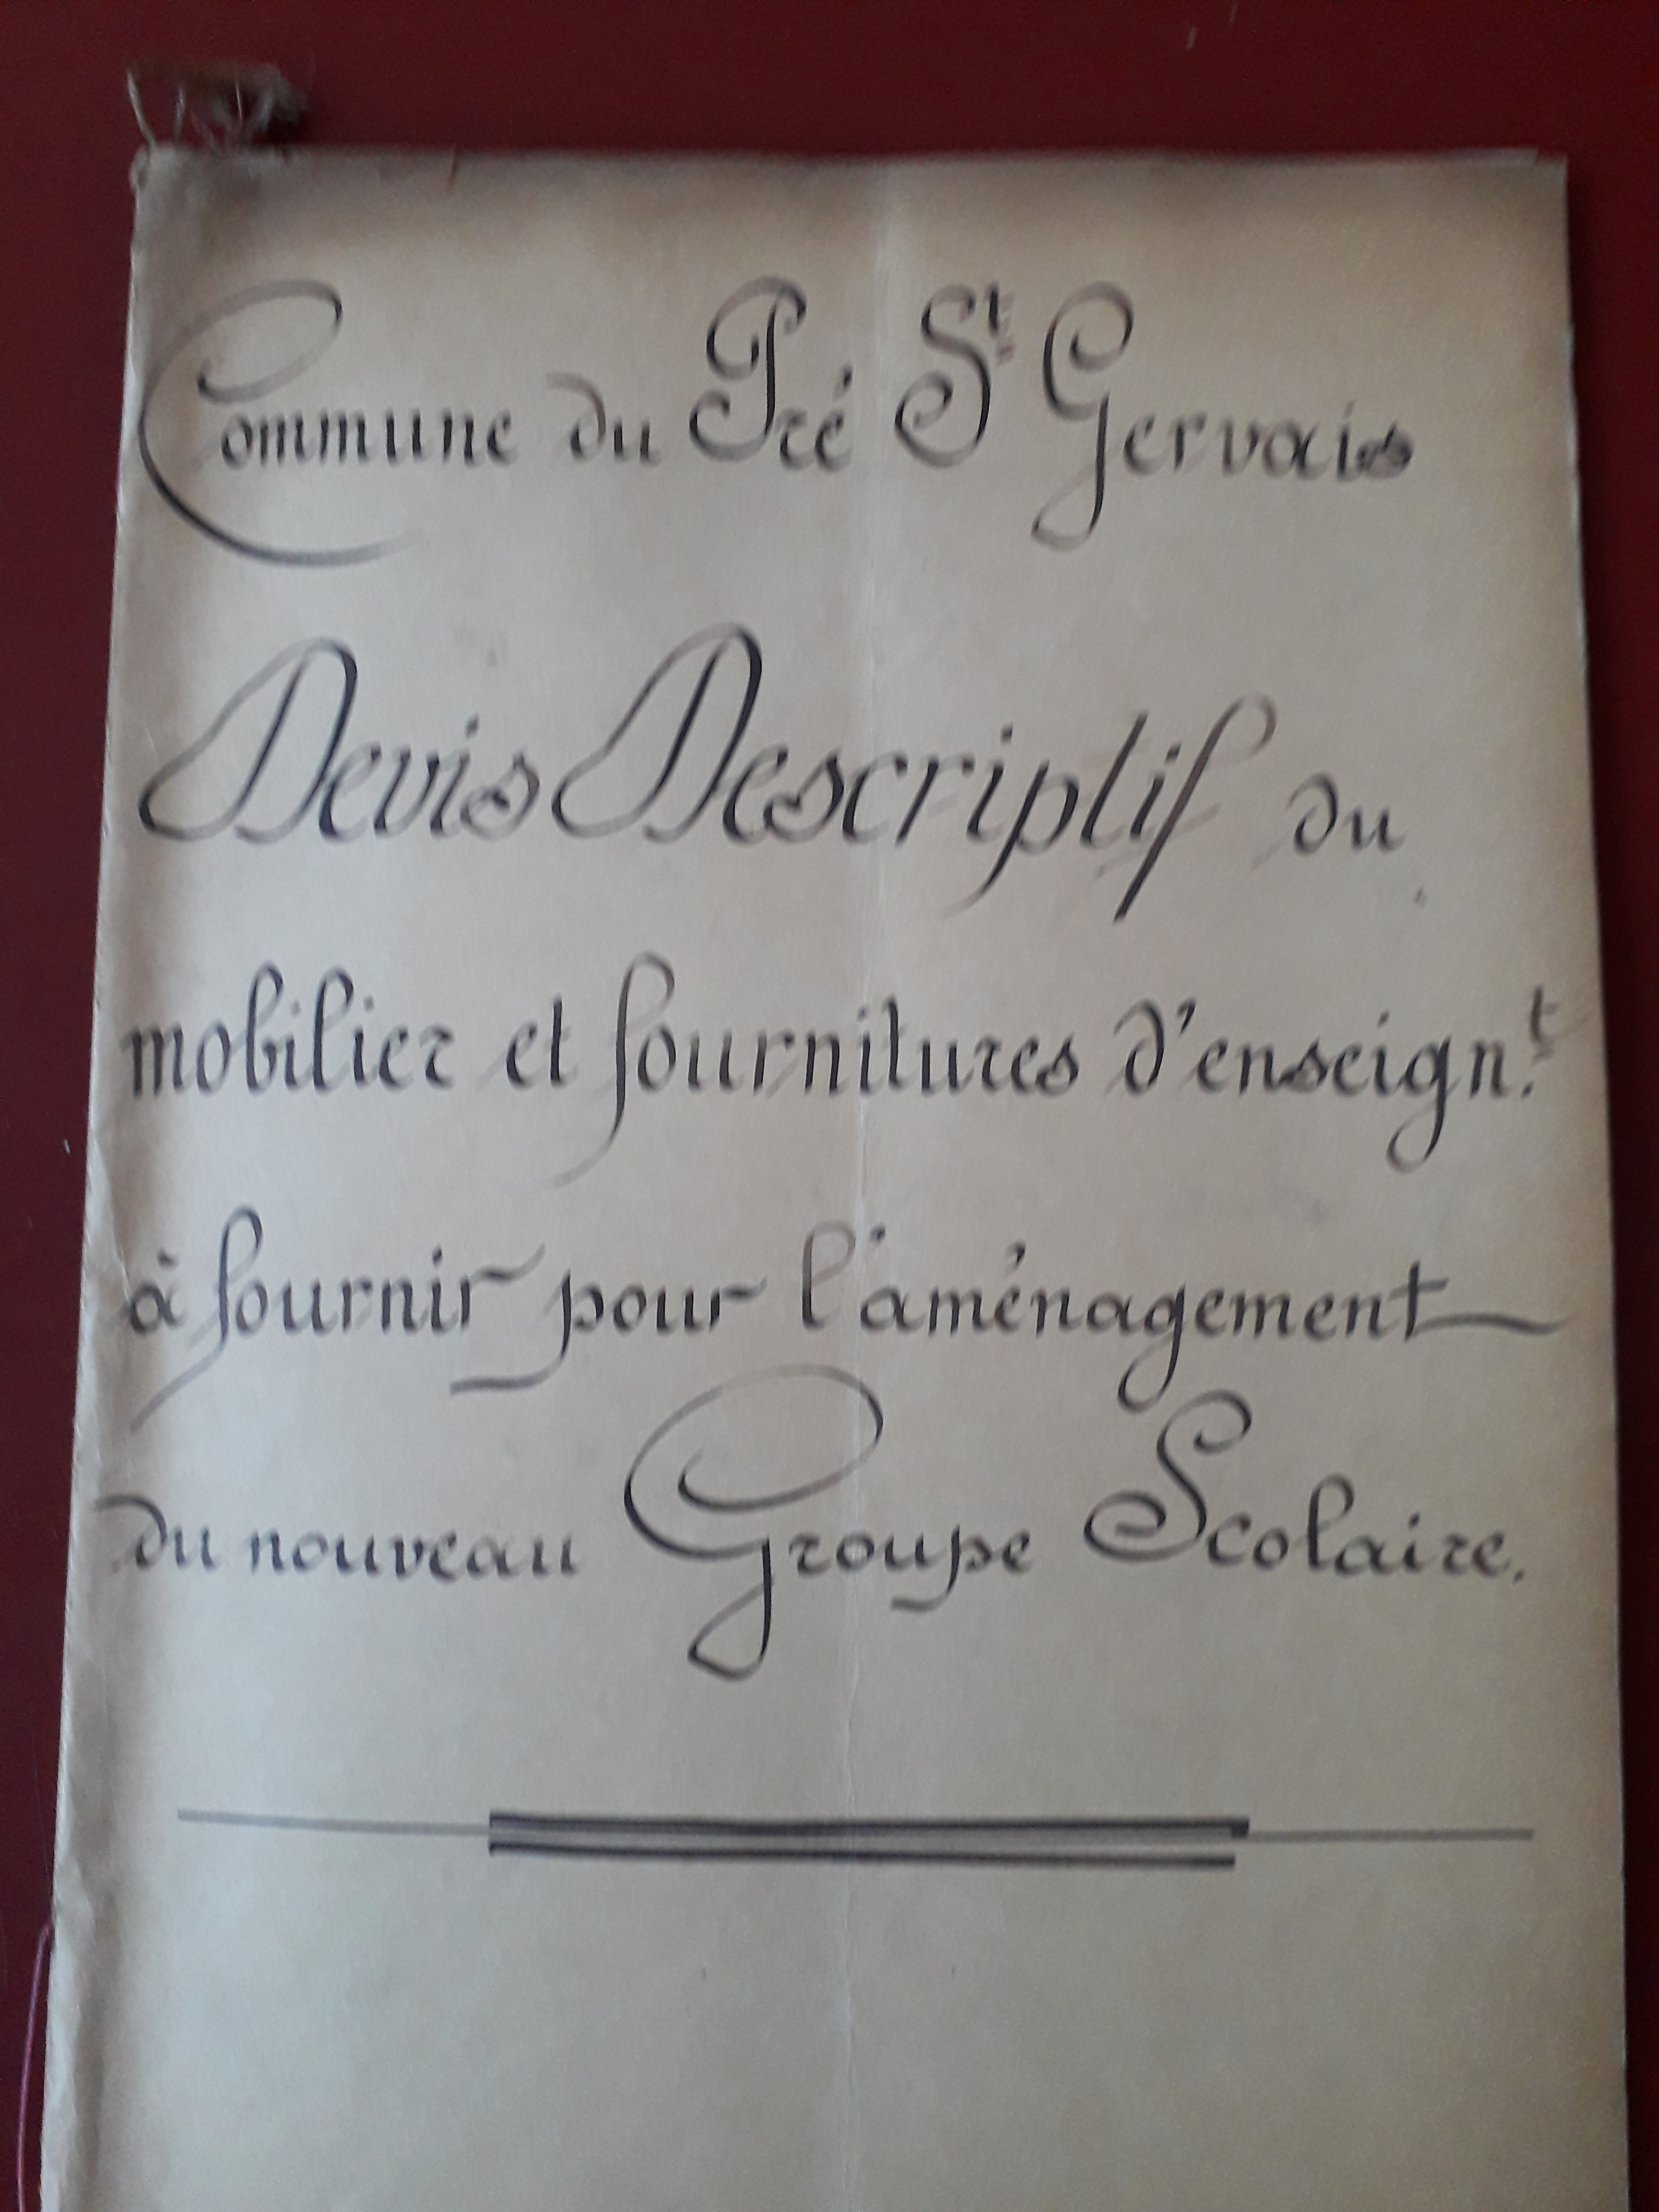 Commune du Pré St Gervais
Devis Descriptif du
mobilier et fournitures d'enseign.t
à fournir pour l'aménagement
du nouveau Groupe Scolaire.